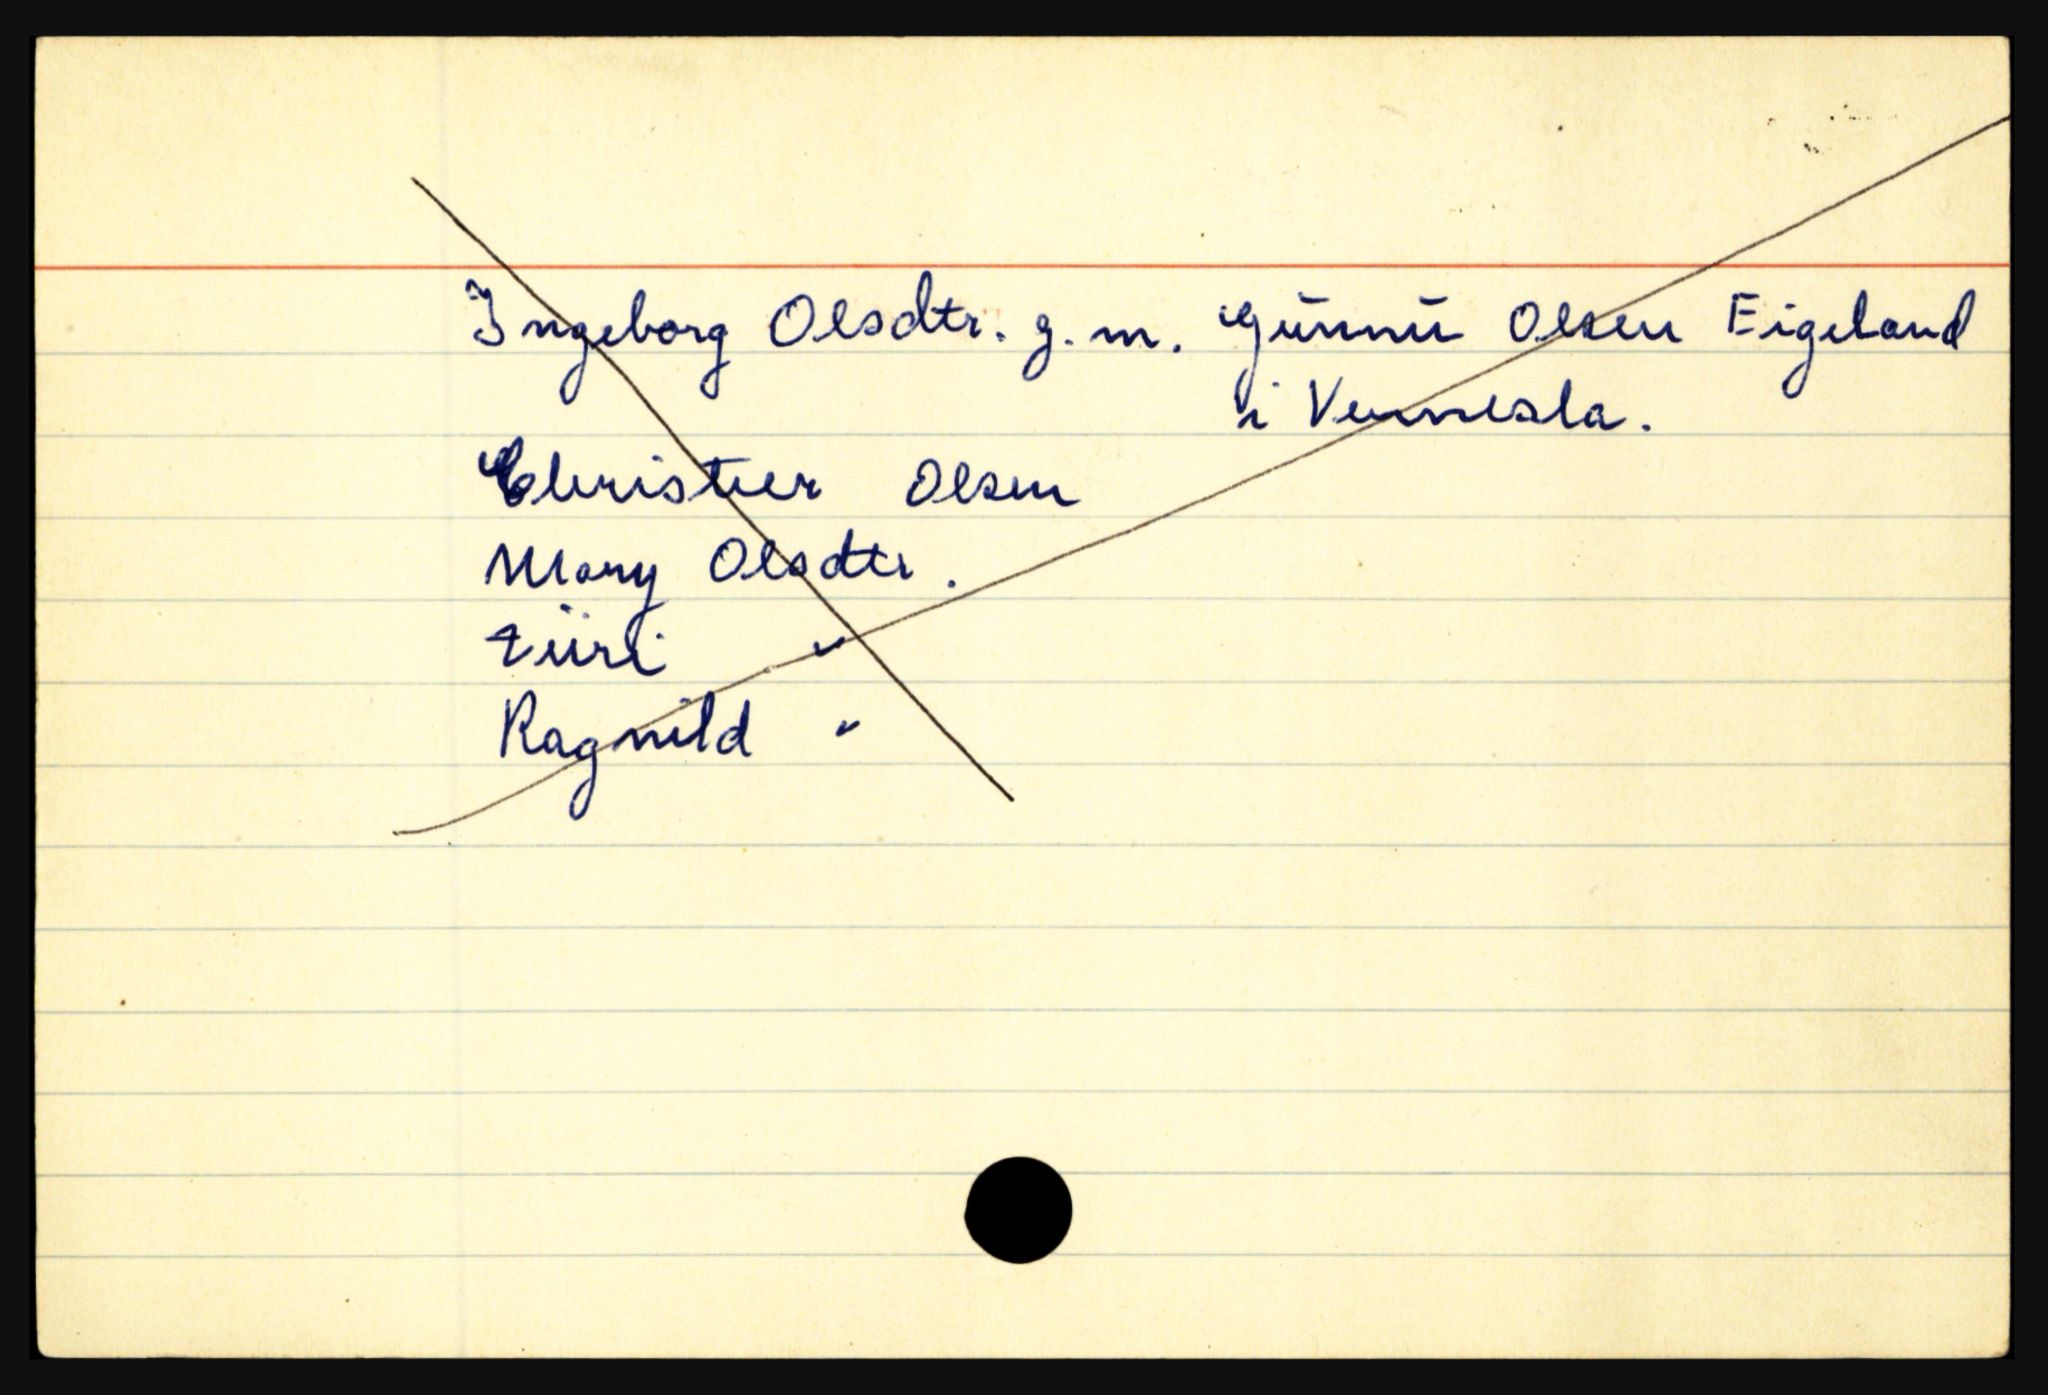 Ingeborg Olsdtr. g. m. Gunnu Olsen Eigeland
i Vennesla.
Christier Olsen
Mary Olsdtr.
"
Ragnild "